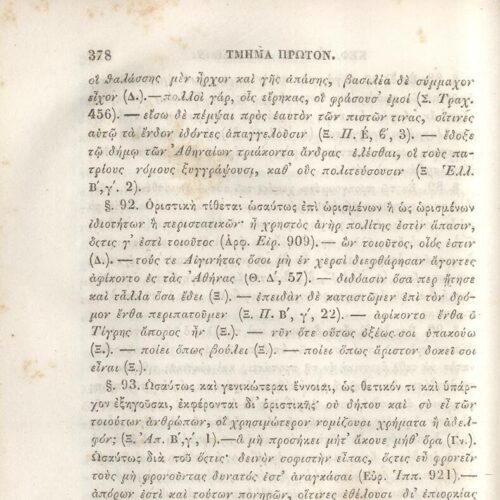 378 ΤΜΗΜΑ ΠΡΩΤΟΝ.
οἳ θαλάσσης μὲν ἦρχον καὶ γῆς ἁπάσης, βασιλέα δὲ σύμμαχον
εἶχον (Δ.).—πολλοὶ γάρ, οἷς εἴρηκας, οἳ φράσουσ' ἐμοί (Σ. Τραχ.
456). — εἴσω δὲ πέμψαι πρὸς ἑαυτὸν τῶν πιστῶν τινας, οἵτινες
αὐτῷ τὰ ἔνδον ἰδόντες ἀπαγγελοῦσιν (Ξ. Π. Ε, β', 3). — ἔδοξε
τῷ δήμῳ τῶν Ἀθηναίων τριάκοντα ἄνδρας ἑλέσθαι, οἳ τοὺς πα-
τρίους νόμους ξυγγράψουσι, καθ' οὓς πολιτεύσουσιν (Ξ Ἑλλ.
Β',γ'. 2).
§. 92. Ὁριστικὴ τίθεται ὡσαύτως ἐπὶ ὡρισμένων ἢ ὡς ὡρισμένων
ἰδιοτήτων ἢ περιστατικῶν· ἦ χρηστὸς ἀνὴρ πολίτης ἐστὶν ἅπασιν,
ὅςτις γ' ἐστὶ τοιοῦτος (Ἀρφ. Εἰρ. 909). — ὢν τοιοῦτος, οἷός ἐστιν
(Δ.). —τούς τε Αἰγινήτας ὅσοι μὴ ἐν χερσὶ διεφθάρησαν ἄγοντες
ἀφίκοντο ἐς τὰς Ἀθήνας (Θ. Δ', 57). — διδόασιν ὅσα περ ᾔτησε
καὶ τἄλλα ὅσα ἔδει (Ξ.). — ἐπειδὰν δὲ καταστῶμεν ἐπὶ τὸν δρό-
μον ἔνθα περιπατοῦμεν (Ξ. Π. Β', γ', 22). — ἀφίκοντο ἔνθα ὁ
Τίγρης ἄπορος ἦν (Ξ.). — νῦν ὅτε οὕτως ὀξέως σοι ὑπακούω
(Ξ.). — ποίει ὅπως βούλει (Ξ.). — ποίει ὅπως ἄριστον δοκεῖ σοι
εἶναι (Ξ.).
§. 93. Ὡσαύτως καὶ γενικώτεραι ἔννοιαι, ὡς θετικόν τι καὶ ὑπάρ-
χον ἐξηγοῦσαι, ἐκφέρονται δι' ὁριστικῆς· οὗ δήπου καὶ σὺ εἶ τῶν
τοιούτων ἀνθρώπων, οἳ χρησιμώτερον νομίζουσι χρήματα ἢ ἀδελ-
φούς (Ξ. Ἀπ. Β',γ', 1).—ἃ μὴ προσήκει μήτ' ἄκουε μήθ' ὅρα (Γν.).
Ὡσαύτως διὰ τοῦ ὅςτις· δεινὸν σοφιστὴν εἶπας, ὅςτις εὖ φρονεῖν
τοὺς μὴ φρονοῦντας δυνατός ἐστ' ἀναγκάσαι (Εὐρ. Ἱππ. 921).—
ἀπόρων ἐστὶ καὶ τούτων πονηρῶν, οἵτινες ἐθέλουσι δι' ἐπιορκίας